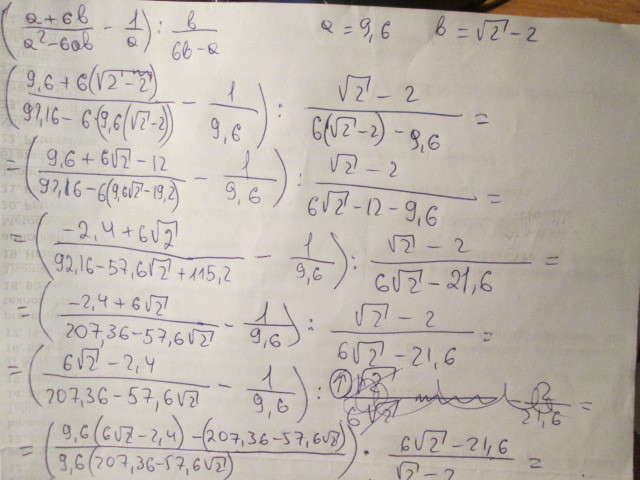 (a+6b/a²-6ab - 1/a) : b/6b-a   a = 9,6   b = √2 - 2
(9,6 + 6(√2-2)/92,16 - 6·(9,6(√2-2)) - 1/9,6) : √2 - 2/6(√2-2) - 9,6 =
= (9,6 + 6√2 - 12/92,16 - 6(9,6√2-19,2) - 1/9,6) : √2 - 2/6√2 - 12 - 9,6 =
= (-2,4 + 6√2/92,16 - 57,6√2 + 115,2 - 1/9,6) : √2 - 2/6√2 - 21,6 =
= (-2,4 + 6√2/207,36 - 57,6√2 - 1/9,6) : √2 - 2/6√2 - 21,6 =
= (6√2 - 2,4/207,36 - 57,6√2 - 1/9,6) : =
= (9,6(6√2 - 2,4) - (207,36 - 57,6√2)/9,6(207,36 - 57,6√2)) · 6√2 - 21,6/√2 - 2 =